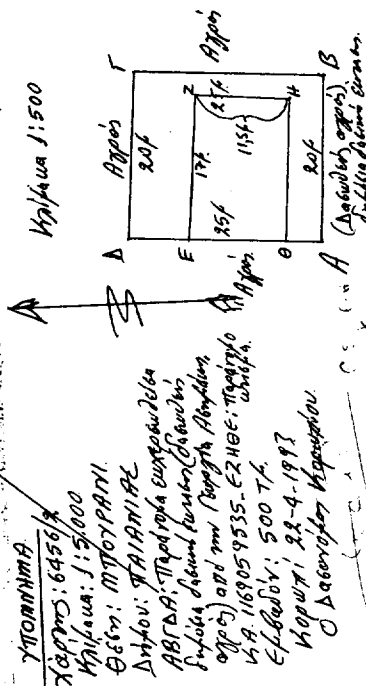 ΥΠΟΜΝΗΜΑ
Χάρτης: 6456/2
Κλίμακα: 1:5000
Θέση: ΜΠΟΥΡΑΝΙ
Δήμου: ΠΑΙΑΝΙΑΣ
ΑΒΓΔΑ: Παράνομα εκχερσωθείσα
δημόσια δασική έκταση (δασωθείς
αγρός) από την
Κ.Α. 1169059535-ΕΖΗΘΕ: παράνομο
κτίσμα.
Εμβαδόν: 500 τ.μ.
Κορωπί 22-4-1993
Ο Δασονόμος Κερατέου
Κλίμακα 1:500
Δ
Αγρός
Γ
20μ
Αγρός
Ε
17μ
Ζ
25μ
11,5μ
25μ
Αγρός
Θ
Η
20μ
Α
Β
(Δασωθείς αγρός)
δημόσια δασική έκταση.